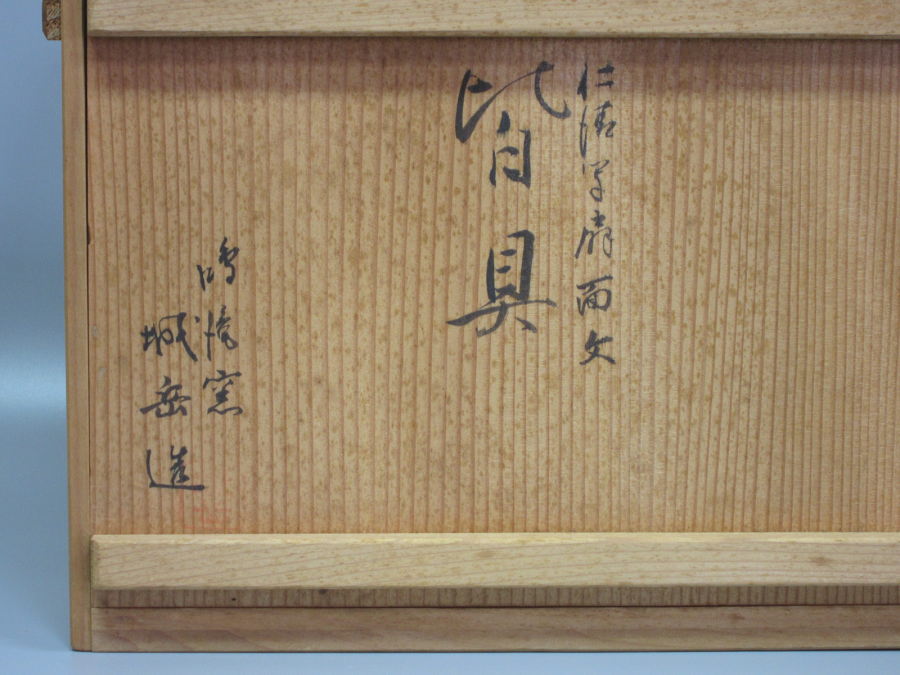 仁清写扇面文
皆具
鳴滝窯
城岳造